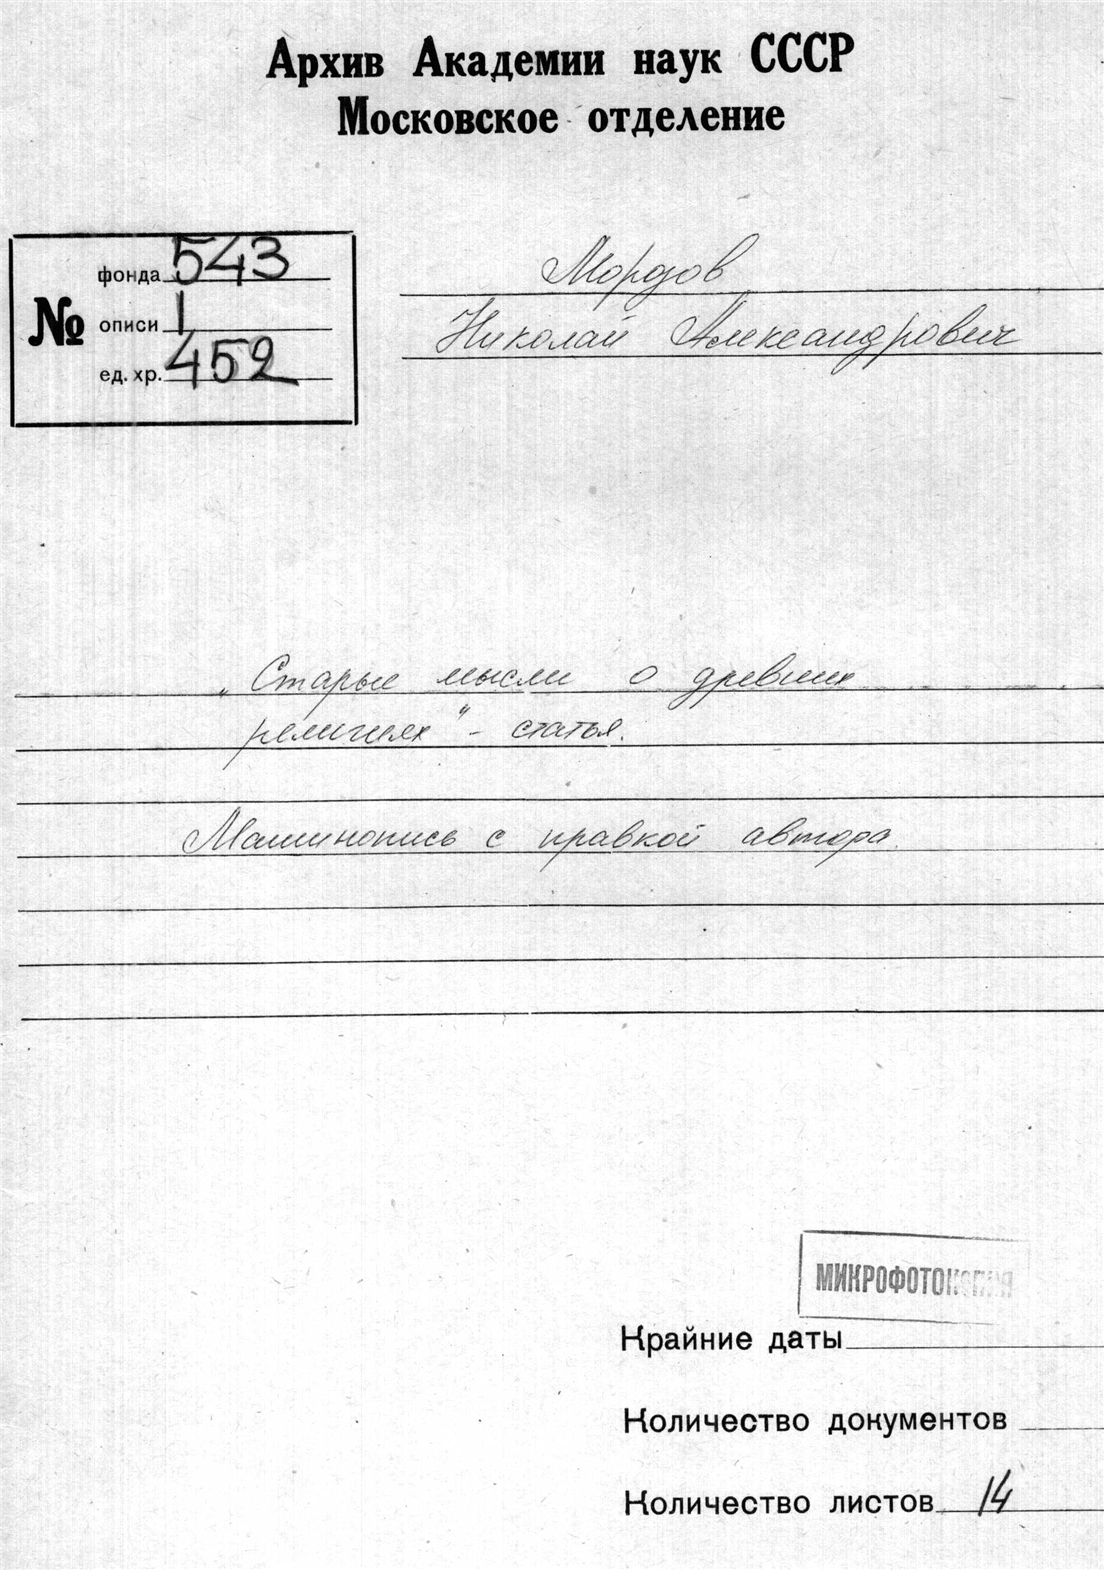 Архив Академии наук СССР
Московское отделение
№
фонда 543
описи 1
ед. хр. 452
Морозов
Николай Александрович
„Старые мысли о древних
религиях" - статья.
Машинопись с правкой автора.
МИКРОФОТОКОПИЯ
Крайние даты
Количество документов
Количество листов 14